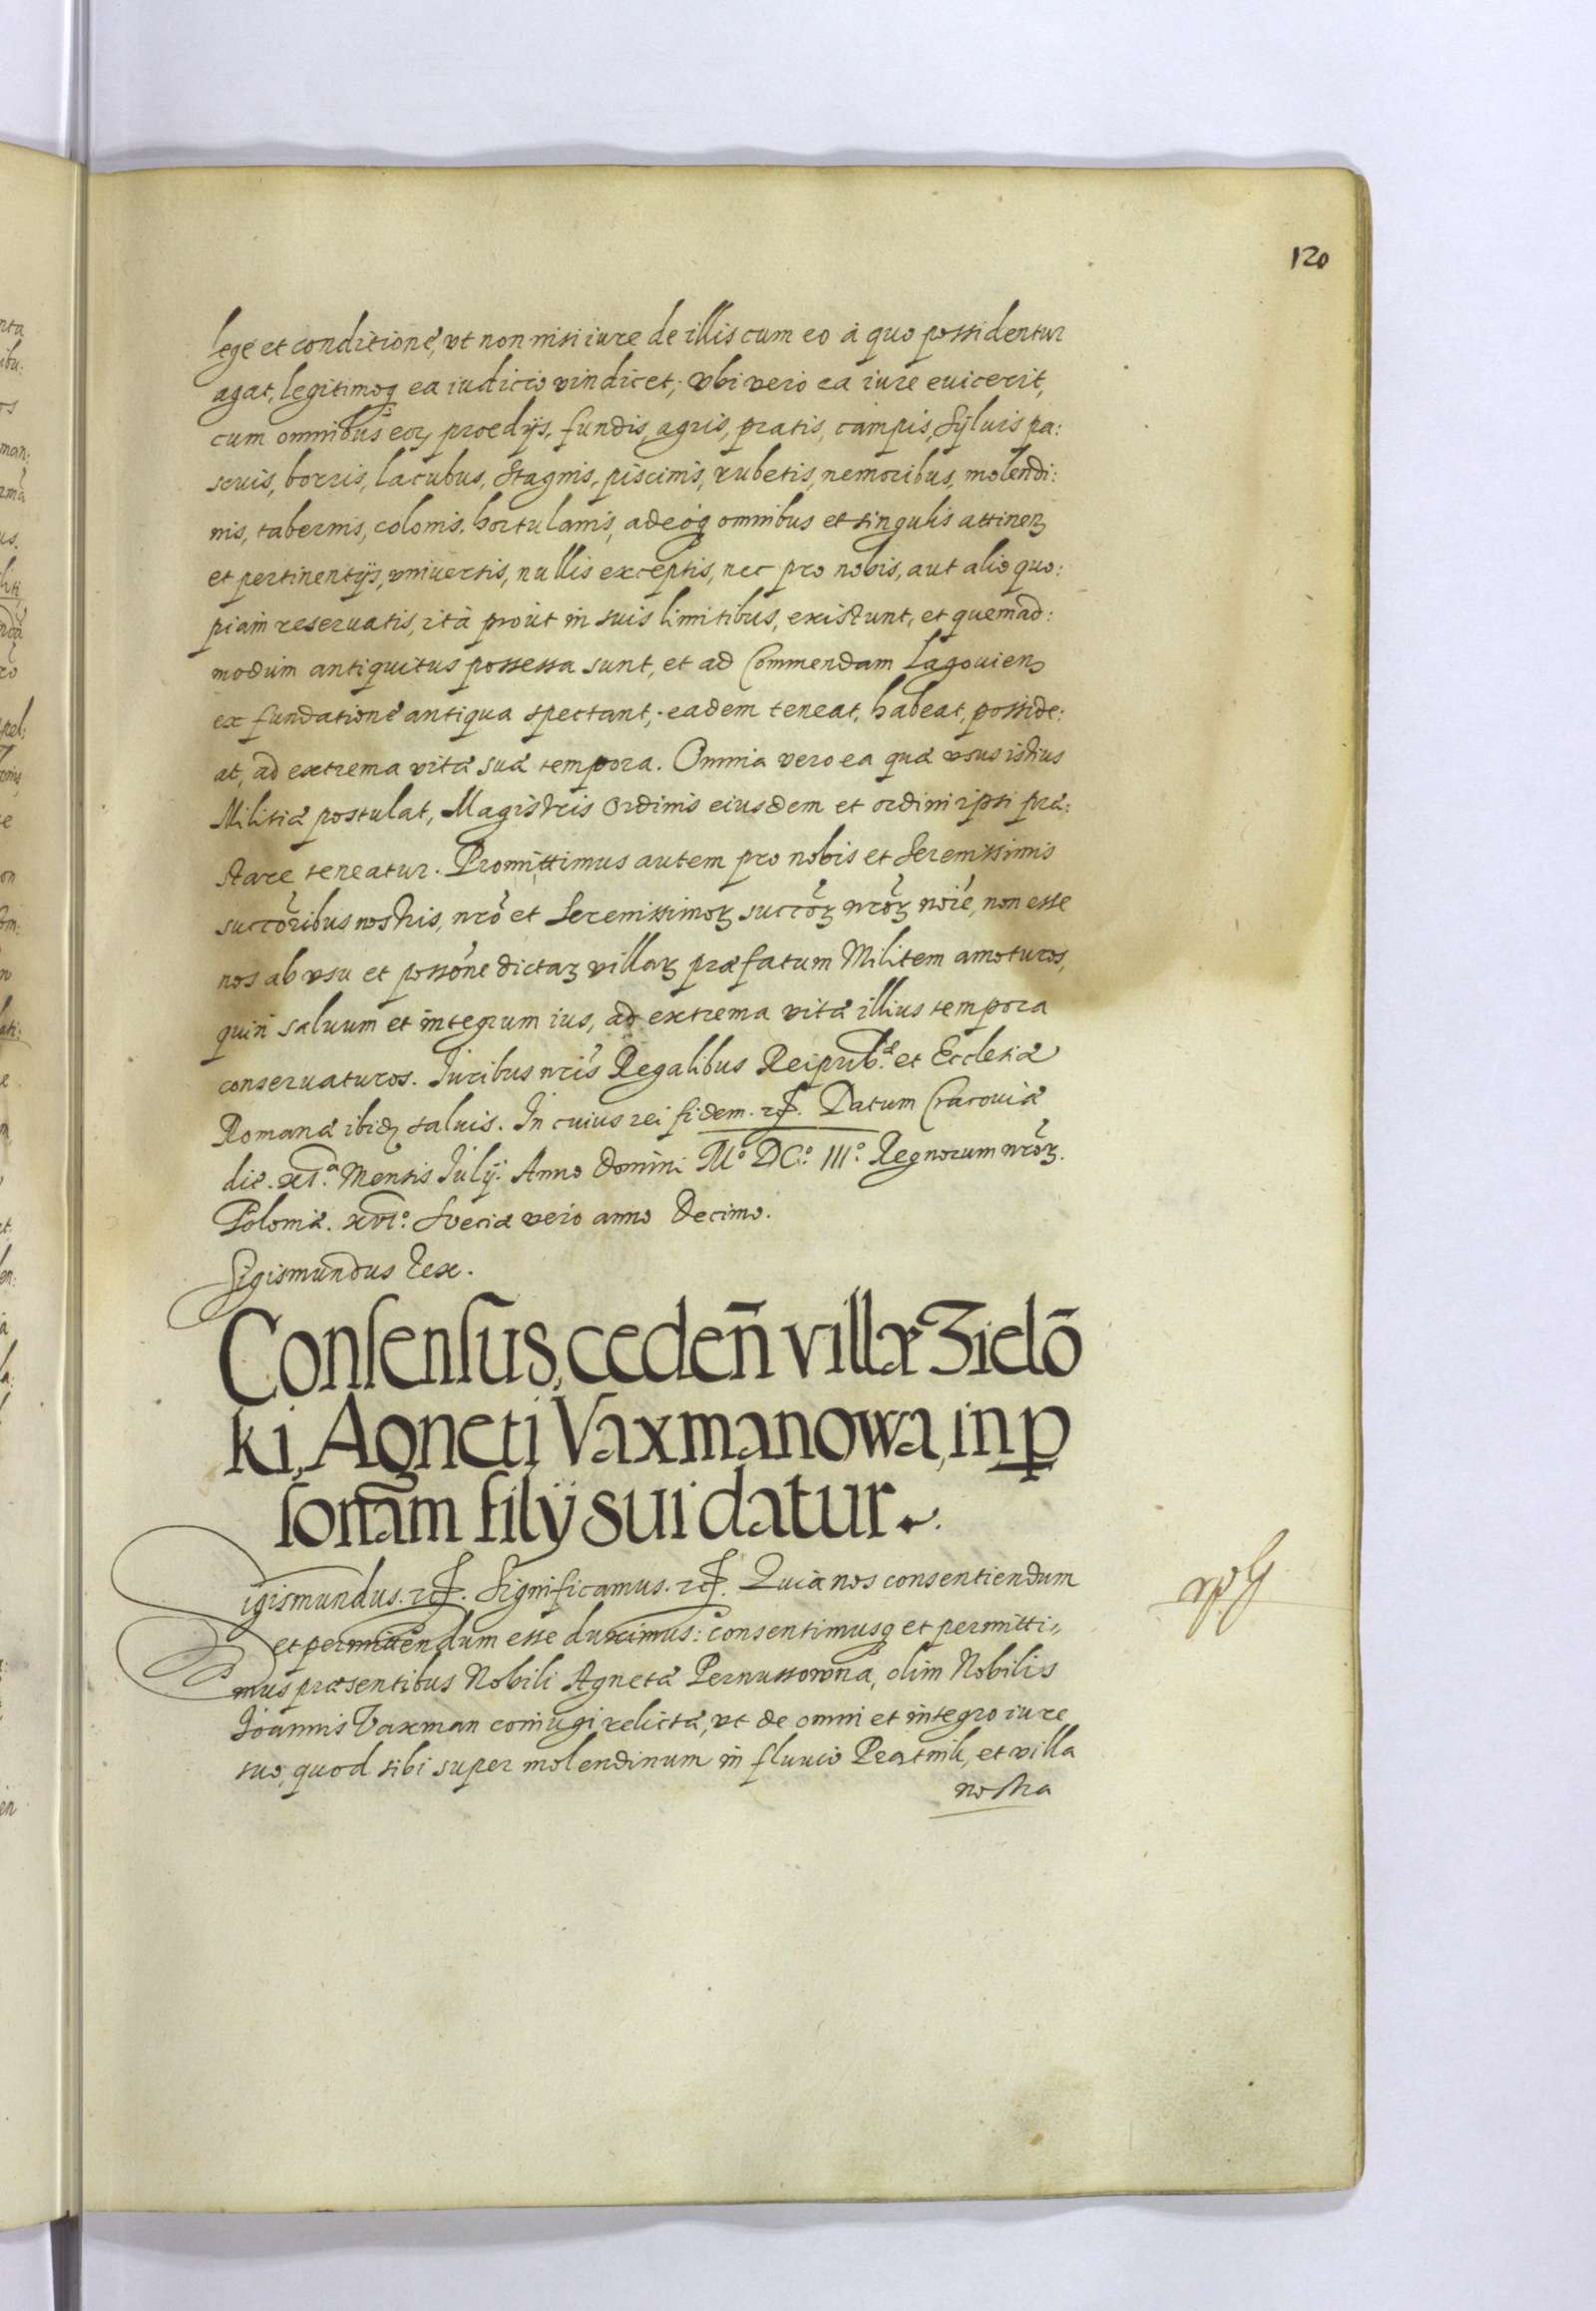 120
lege et conditione, vt non nisi iure de illis cum eo à quo possidentur
agat, legitimoq ea iudicio vindicet; vbi vero ea iure euicerit,
cum omnibus eorꝫ proedijs, fundis, agris, pratis, campis, Syluis pa:
scuis, borris, lacubus, Stagnis, piscinis, rubetis, nemoribus, molendi:
nis, tabernis, colonis, hortulanis, adeoq omnibus et singulis attinenꝫ
et pertinentijs, vniuersis, nullis exceptis, nec pro nobis, aut alio quo:
piam reseruatis, ità prout in suis limitibus, existunt, et quemad:
modum antiquitus possessa sunt, et ad Commendam Lagouienꝫ
ex fundatione antiqua spectant, eadem teneat, habeat, posside:
at, ad extrema vitæ suæ tempora. Omnia vero ea quæ vsus istius
Militiæ postulat, Magistris Ordinis eiusdem et ordini ipsi præ:
stare teneatur. Promittimus autem pro nobis et Serenissimis
succōribus nostris, nrō et Serenissimoꝝ succōꝝ nrōꝝ noīe, non esse
nos ab vsu et possōne dictaꝝ villaꝝ præfatum Militem amoturos,
quin saluum et integrum ius, ad extrema vitæ illius tempora
conseruaturos. Iuribus nrīs Regalibus Reipub:æ et Ecclesiæ
Romanæ ibidꝫ saluis. In cuius rei fidem. rcꝭ. Datum Cracouiæ
die. XI.ª Mensis Iulij. Anno Domini Mº DCº. IIIº. Regnorum nrōꝝ.
Poloniæ. XVI.º Sueciæ vero anno Decimo.
Sigismundus Rex.
Consensus, cedeñ villæ Zielō
ki, Agneti Vaxmanowa, in ꝑ
sonam filÿ sui datur.
Sigismundus. rcꝭ. Significamus. rcꝭ. Quia nos consentiendum
et permittendum esse duximus: consentimusq et permitti„
mus præsentibus Nobili Agnetæ Pernussowna, olim Nobilis
Ioannis Vaxman coniugi relictæ, vt de omni et integro iure
suo, quod sibi super molendinum in fluuio Peatnik, et villa
nostra